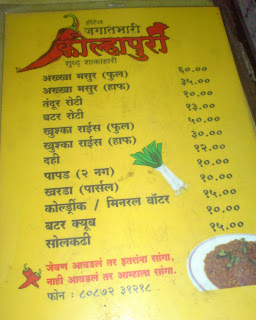 हॉटेल
जगातभारी
कोल्हापुरी
शुध्द शाकाहारी
अख्खा मसुर (फुल) ६०.००
अख्खा मसुर (हाफ) ३५.००
तंदूर रोटी १०.००
बटर रोटी १३.००
खुश्का राईस (फुल) ५०.००
खुश्का राईस (हाफ) ३०.००
दही १२.००
पापड (२ नग) १०.००
खरडा (पार्सल) १०.००
कोल्ड्रींक / मिनरल वॉटर १५.००
बटर क्यूब १०.००
सोलकढी १५.००
जेवण आवडलं तर इतरांना सांगा,
नाही आवडलं तर आम्हाला सांगा.
फोन : ८०८७२ ३१२१८